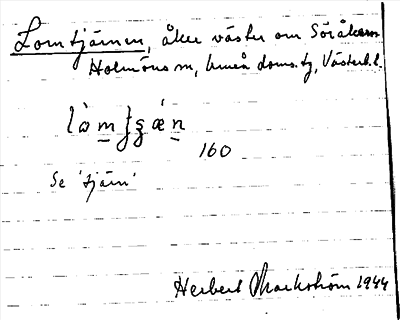 Lomtjärnen, åker väster om Söråkern
Holmöns sn, Umeå doms.tg, Västerb.l.
lòm̲ʒǽn̲
160
Se 'tjärn'
Herbert Markström 1944